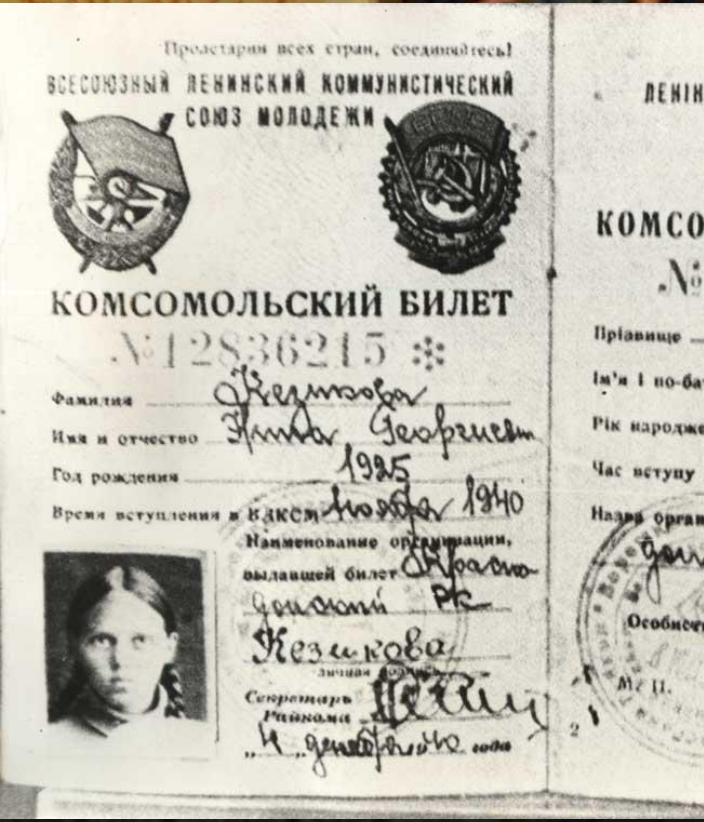 Пролетарии всех стран, соединяйтесь!
ВСЕСОЮЗНЫЙ ЛЕНИНСКИЙ КОММУНИСТИЧЕСКИЙ
СОЮЗ МОЛОДЕЖИ
КОМСОМОЛЬСКИЙ БИЛЕТ
№12836215
Фамилия Кезикова
Имя и отчество Нина Георгиевн
Год рождения 1925
Время вступления в ВЛКСМ Ноябрь 1940
Наименование организации,
выдавшей билет Красно
донский РК
Кезикова
личная подпись
Секретарь
Райкома
"4" декабря 40 года
ЛЕНІН
КОМСО
№
Прізвище
Ім'я і по-ба
Рік народже
Час вступу
Назва орган
дон
Особист
М. П.
2